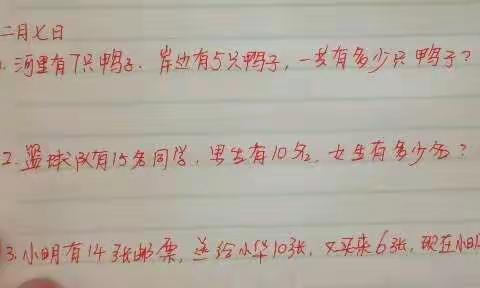 二月七日
1. 河里有7只鸭子. 岸边有5只鸭子, 一共有多少只鸭子?
2. 篮球队有15名同学, 男生有10名, 女生有多少名?
3. 小明有14张邮票, 送给小华10张, 又买来6张, 现在小明